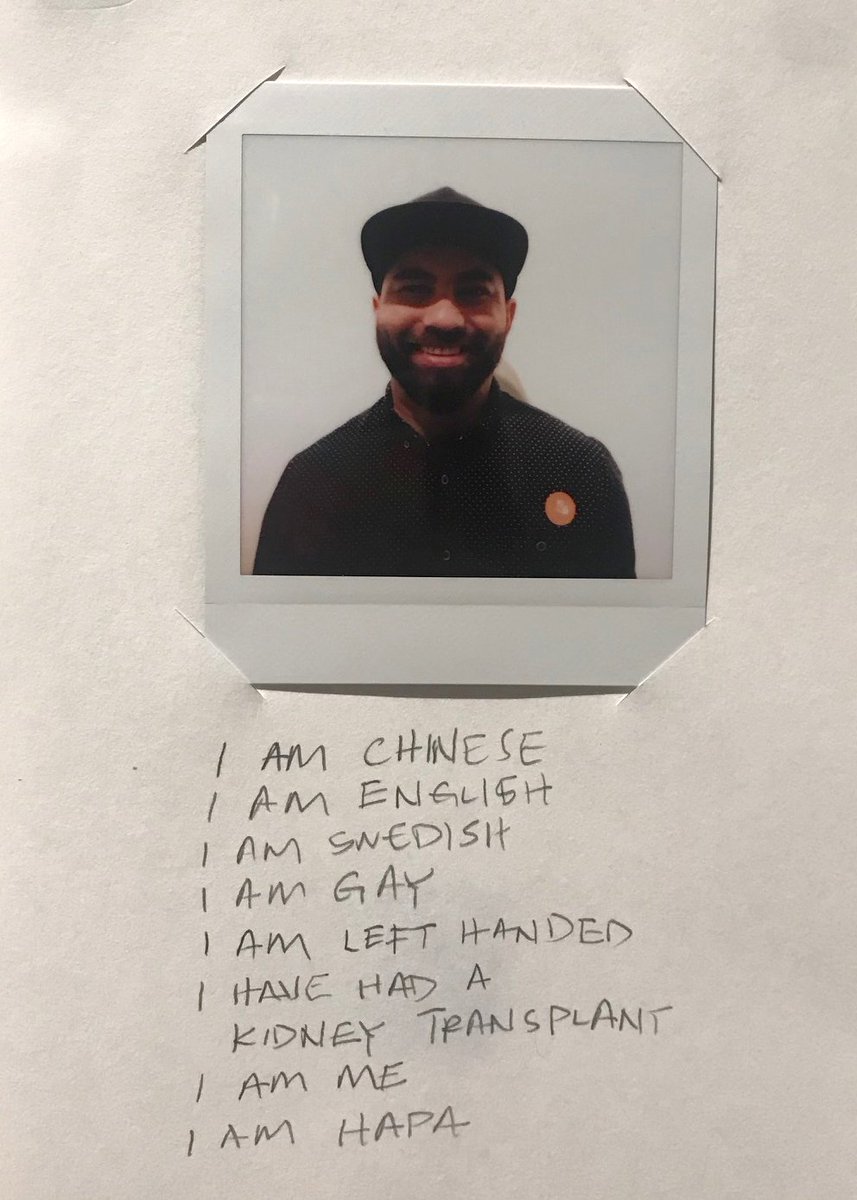 I AM CHINESE
I AM ENGLISH
I AM SWEDISH
I AM GAY
I AM LEFT HANDED
I HAVE HAD A
KIDNEY TRANSPLANT
I AM ME
I AM HAPA